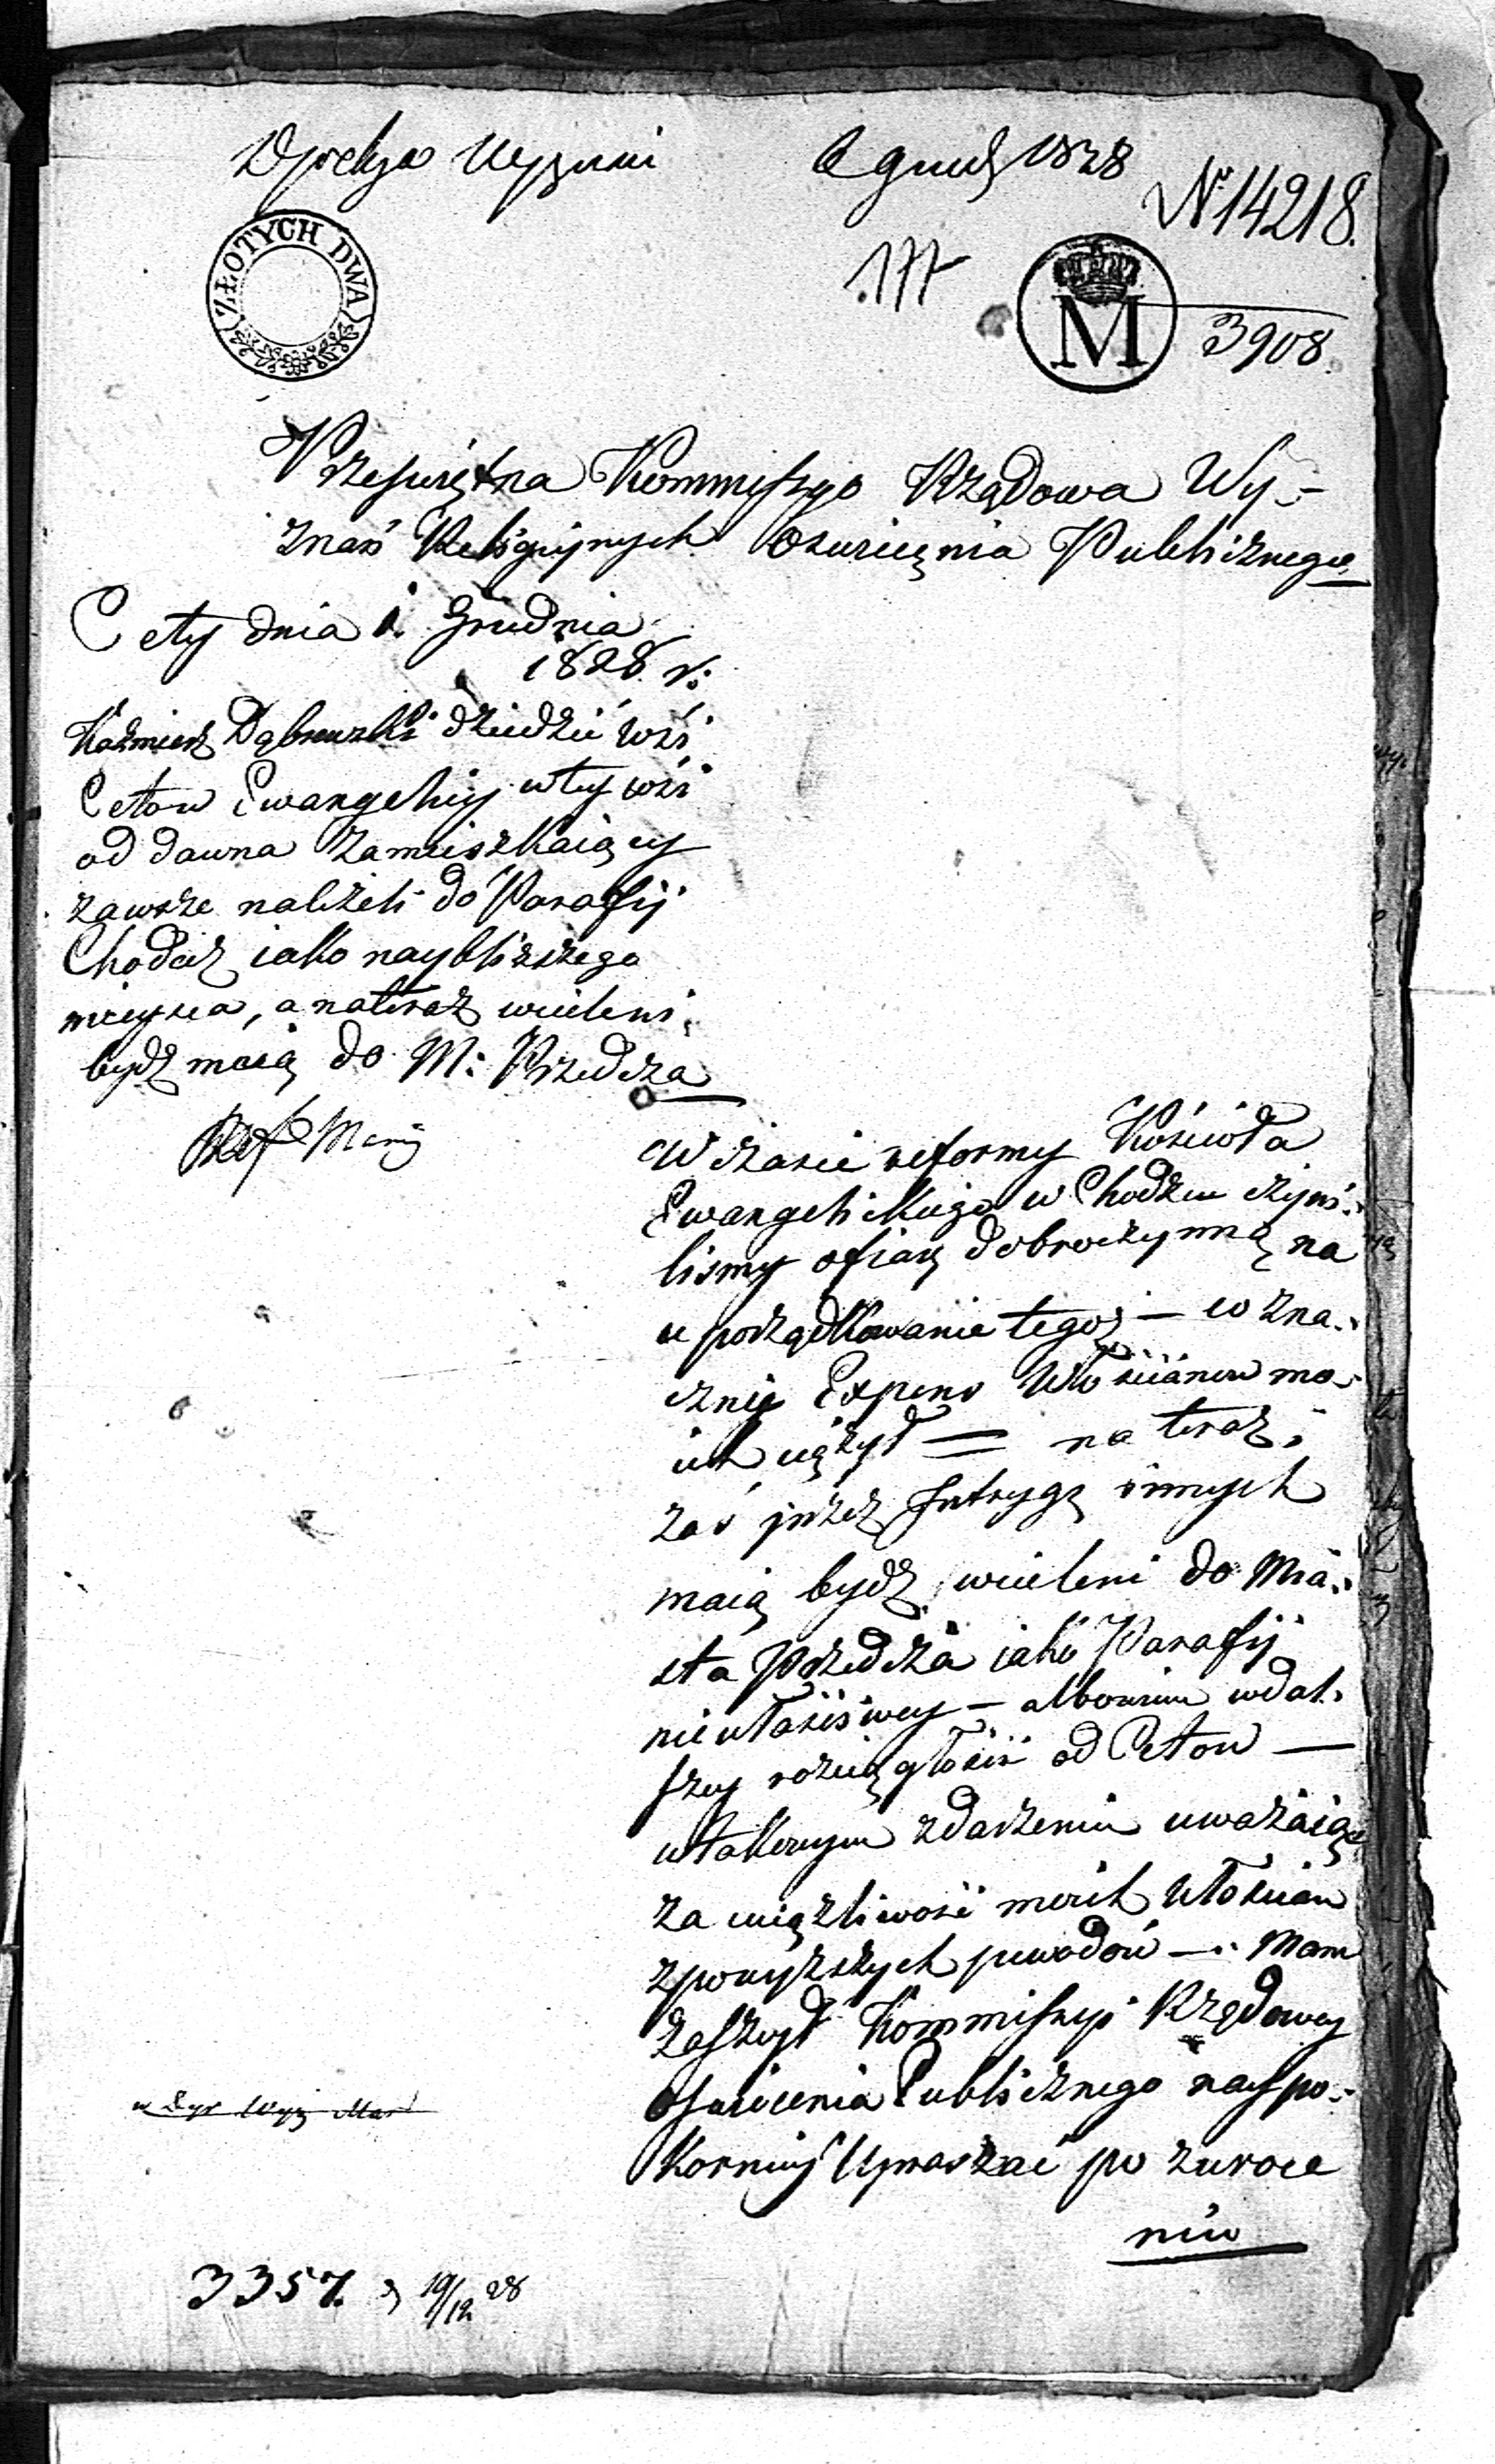 Dyrekcya Wyznań 6 Grud 1828
N 14218.
ZŁOTYCH DWA
177
M
3908.
Przeświętna Kommissyo Rządowa Wy-
znań Religijnych Oświecęnia Publicznego
Cety dnia 1. Grudnia
1828 r:
Kaźmierz Dąbrowski dziedzic wsi
Cetow Ewangelicy w tey wsi
od dawna zamieszkaiący
zawsze należeli do Parafij
Chodcz iako naybliższego
mieysca, a na teraz wcieleni
bydź maią do M: Przedcza
W czasie reformy Kościoła
Ewangelickiego w Chodczu czyni-
lismy ofiarę dobroczynną na
uporządkowanie tegoż — w zna-
cznię Expens Włościanow mo-
ich użył — na teraz
zaś przez Intrygę innych
maią bydź wcieleni do Mia-
sta Przedcza iako Parafij
niewłaściwey — albowiem w dal-
szey rozciągłości od Cetow —
w takowym zdarzeniu uważaiąc
za uciążliwość moich Włościan
z powyższych powodów — Mam
zaszczyt Kommissyi Rządowey
Oświecenia Publicznego nayspo-
korniey Upraszać po zwroce
niu
3357. 19/12 28